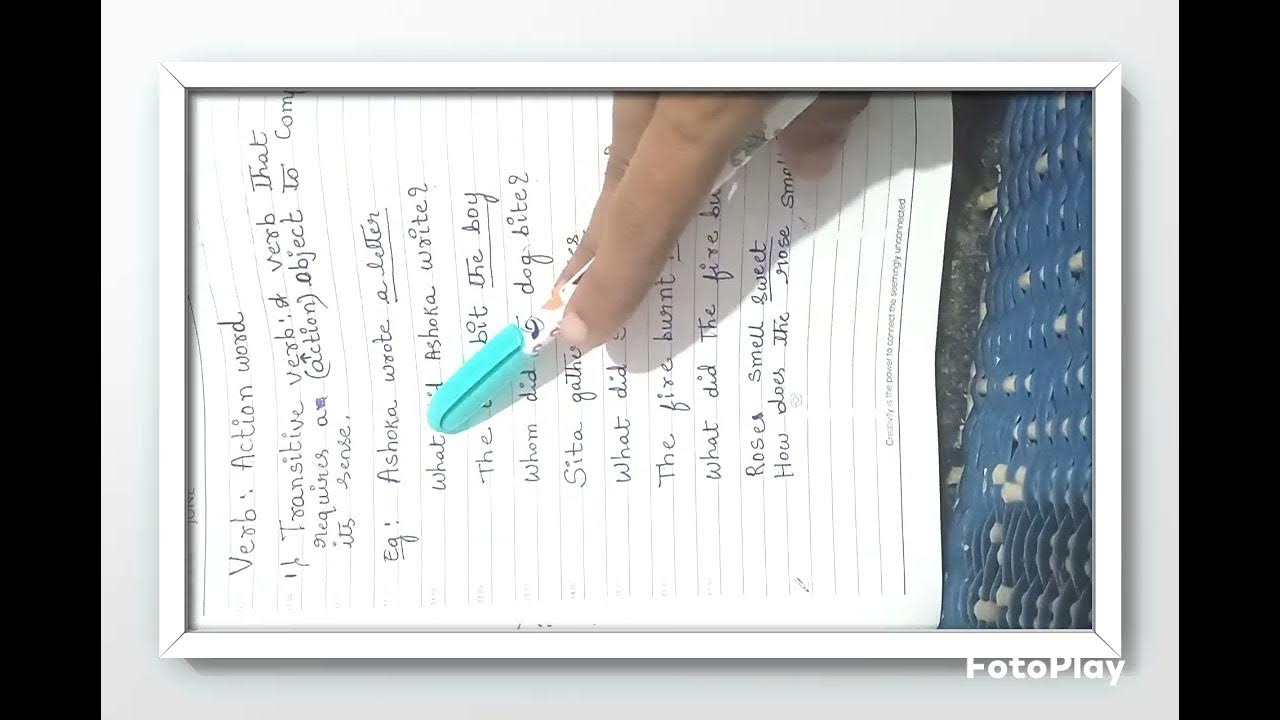 JUNE
Verb: Action word
1) Transitive verb: A verb that
requires an (action) object to
its sense.
Eg: Ashoka wrote a letter
What Ashoka write?
The bit the boy
Whom did dog bite?
Sita
What did
The fire burnt
What did the fire
Roses smell sweet
How does the rose
Creativity is the power to connect the seemingly unconnected
FotoPlay